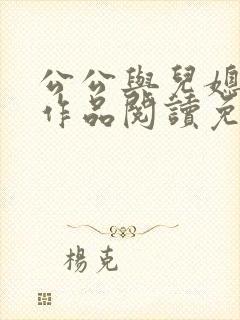 公公與兒媳
作品閱讀免
楊克